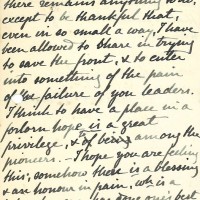 there remains anything else
except to be thankful that,
even in so small a way, I have
been allowed to share in trying
to save the front, & to enter
into something of the pain
of the failure of you leaders.
I think to have a place in a
forlorn hope is a great
privilege, & of being among the
pioneers. – I hope you are feeling
this; somehow there is a blessing
& an honour in pain, wh. is a
has done one's best